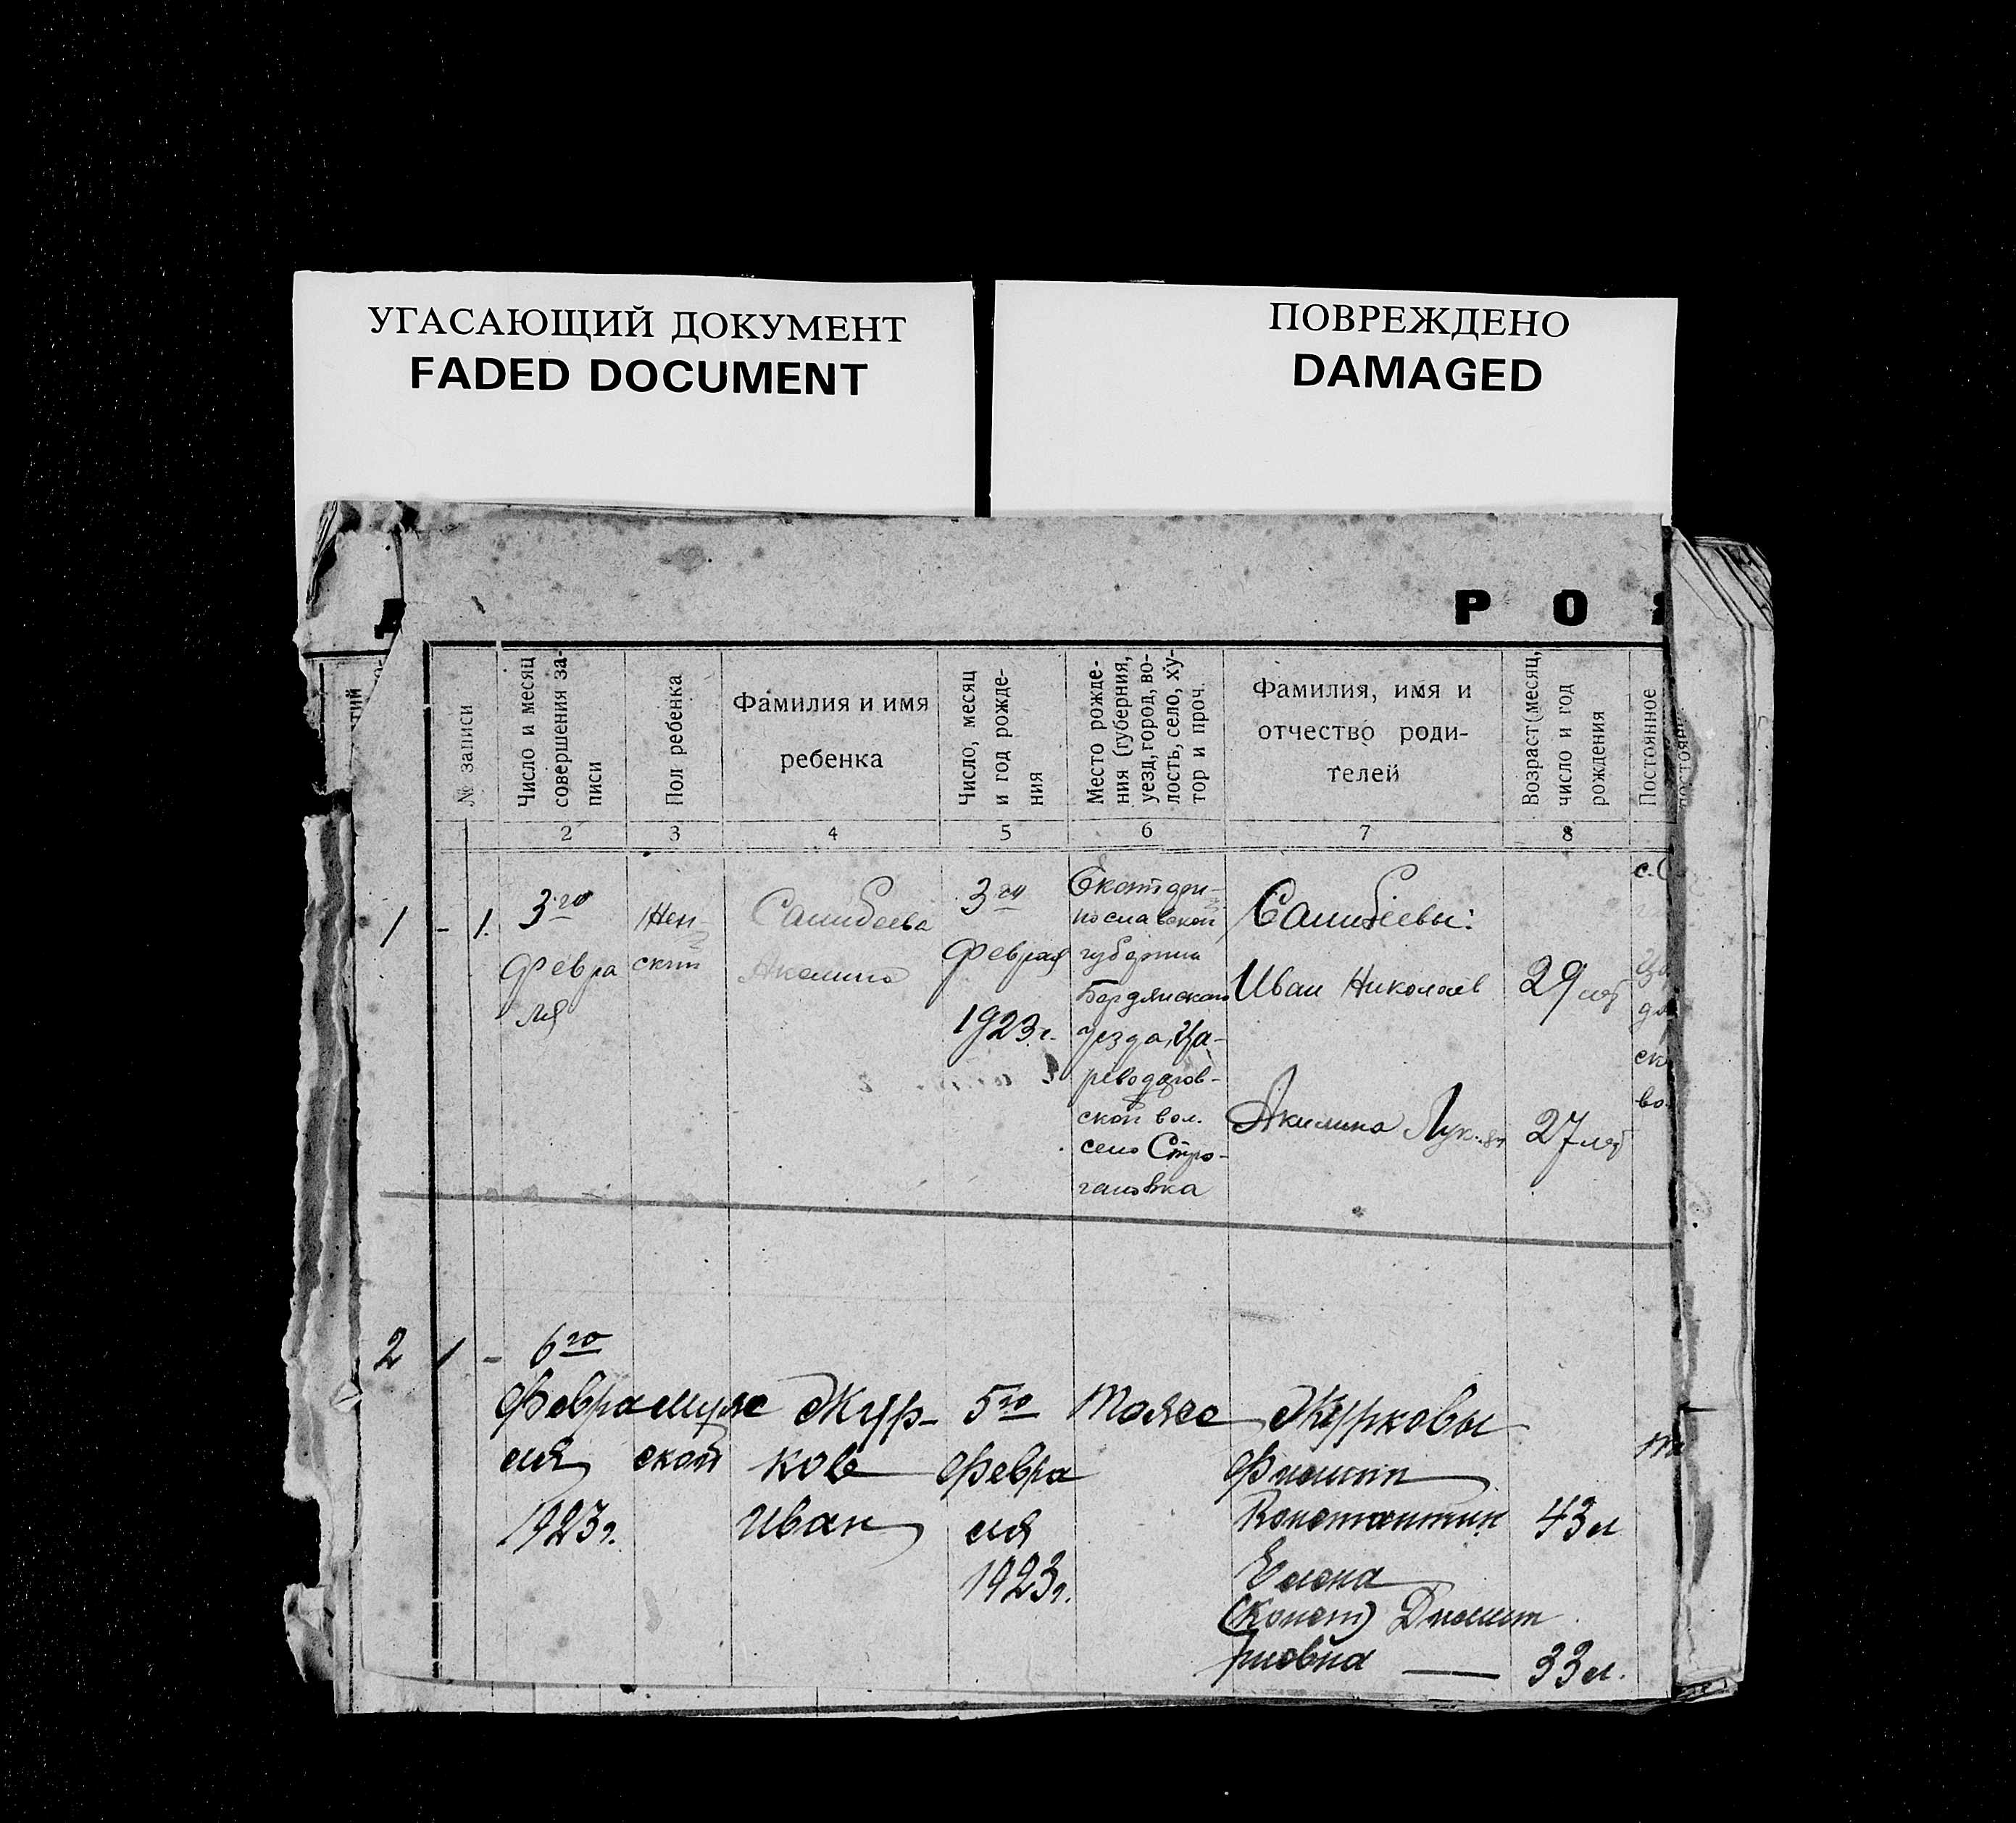 УГАСАЮЩИЙ ДОКУМЕНТ
FADED DOCUMENT
ПОВРЕЖДЕНО
DAMAGED
Р О
№ записи
Число и месяц
совершения за-
писи
Пол ребенка
Фамилия и имя
ребенка
Число, месяц
и год рожде-
ния
Место рожде-
ния (губерния,
уезд, город, во-
лость, село, ху-
тор и проч.
Фамилия, имя и
отчество роди-
телей
Возраст (месяц,
число и год
рождения
Постоянное
2
3
4
5
6
7
8
1 - 1.
3го
Февра
ля
Жен-
ский
Салибеева
Акелина
3го
Февраля
1923 г.
Екатери-
нославской
губернии
Бердянского
уезда, Ца-
реводаров-
ской вол.
село Стро-
гановка
Салибеевы:
Иван Николаев
29 лет
Акилина Лук.
27 лет
2 1 -
6го
Февра
ля
1923г.
муж
ской
Жур-
ков
Иван
5го
Февра
ля
1923г.
Тоже
Журковы
Филипп
Константин
43 л
Елена
(Конст) Дмит
риевна —
33 л.